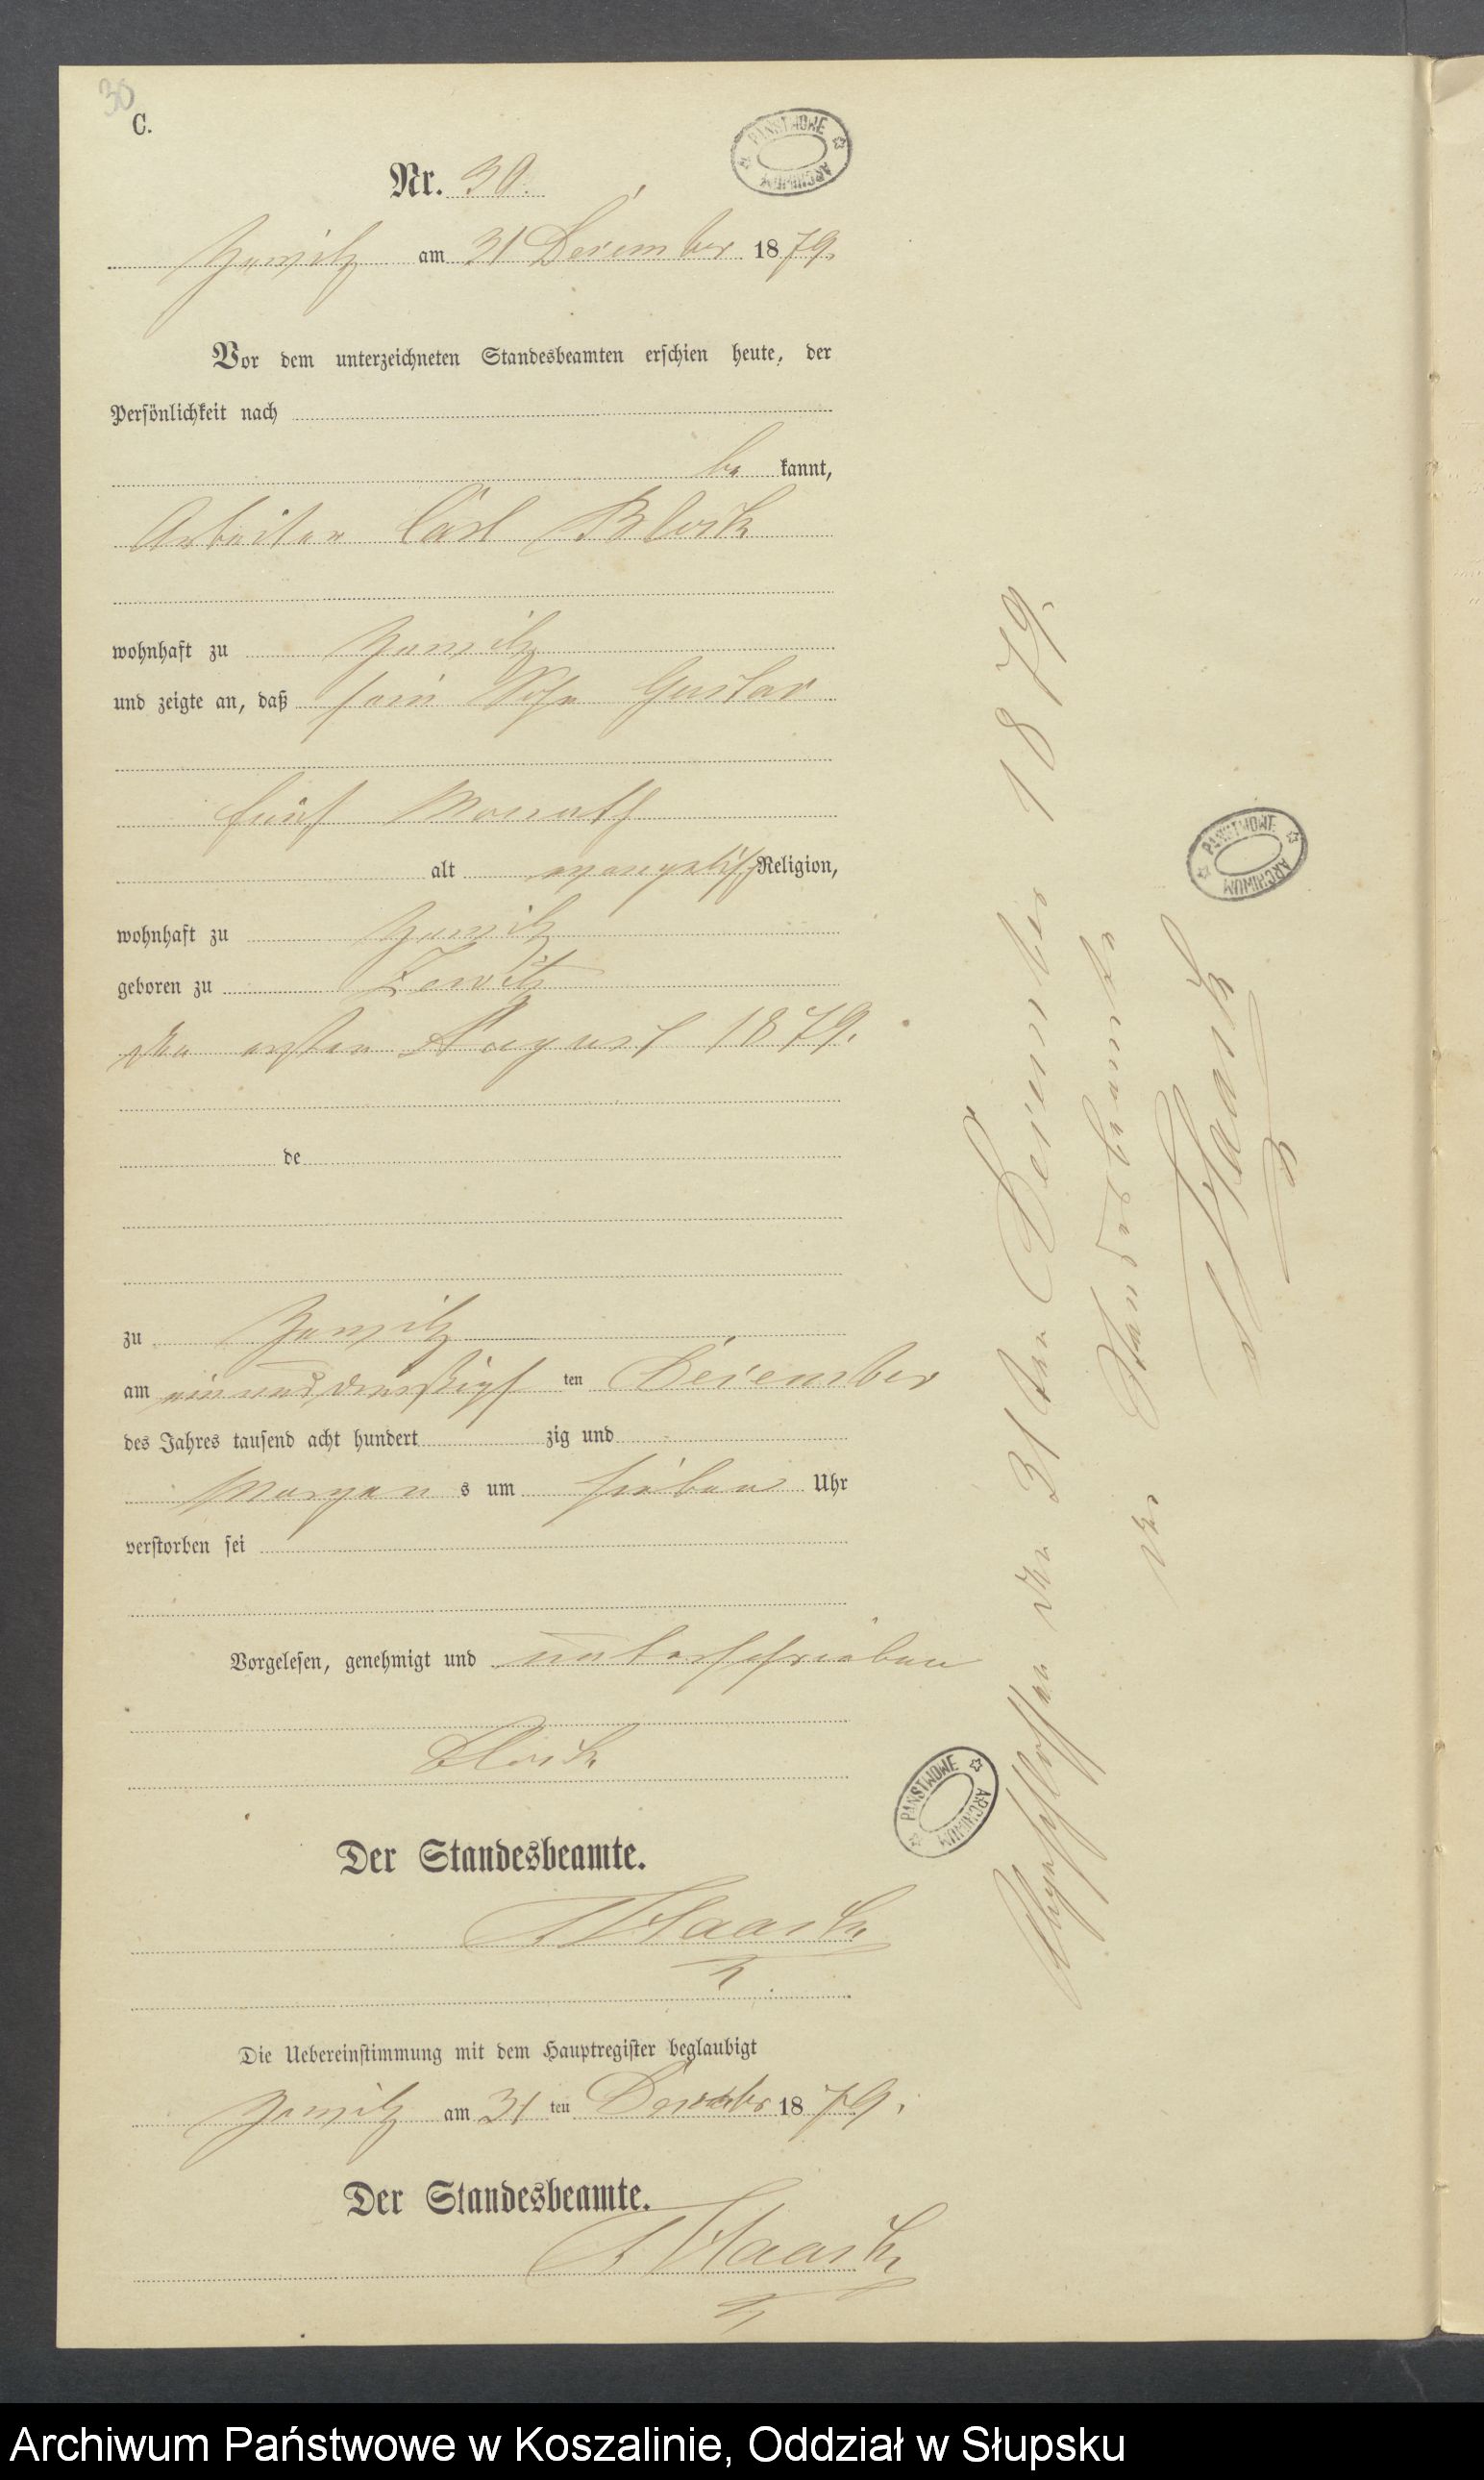 30
C.
Nr. 30.
am 31 Dezember 1879.
Vor dem unterzeichneten Standesbeamten erschien heute, der
Persönlichkeit nach
be kannt,
Arbeiter Carl Block
wohnhaft zu
und zeigte an, daß sein Sohn Gustav
fünf Monath
alt evangelisch Religion,
wohnhaft zu
geboren zu Zewitz
den ersten August 1879.
de
zu
am ein und dreißigst ten Dezember
des Jahres tausend acht hundert zig und
Morgen s um sieben Uhr
verstorben sei
Vorgelesen, genehmigt und unterschrieben
Block
Der Standesbeamte.
Haack
Die Uebereinstimmung mit dem Hauptregister beglaubigt
am 31 ten Dezember 1879.
Der Standesbeamte.
Haack
Abgeschlossen den 31 ten Dezember 1879.
Der Standesbeamte
Haack
PAŃSTWOWE ARCHIWUM
PAŃSTWOWE ARCHIWUM
PAŃSTWOWE ARCHIWUM
Archiwum Państwowe w Koszalinie, Oddział w Słupsku